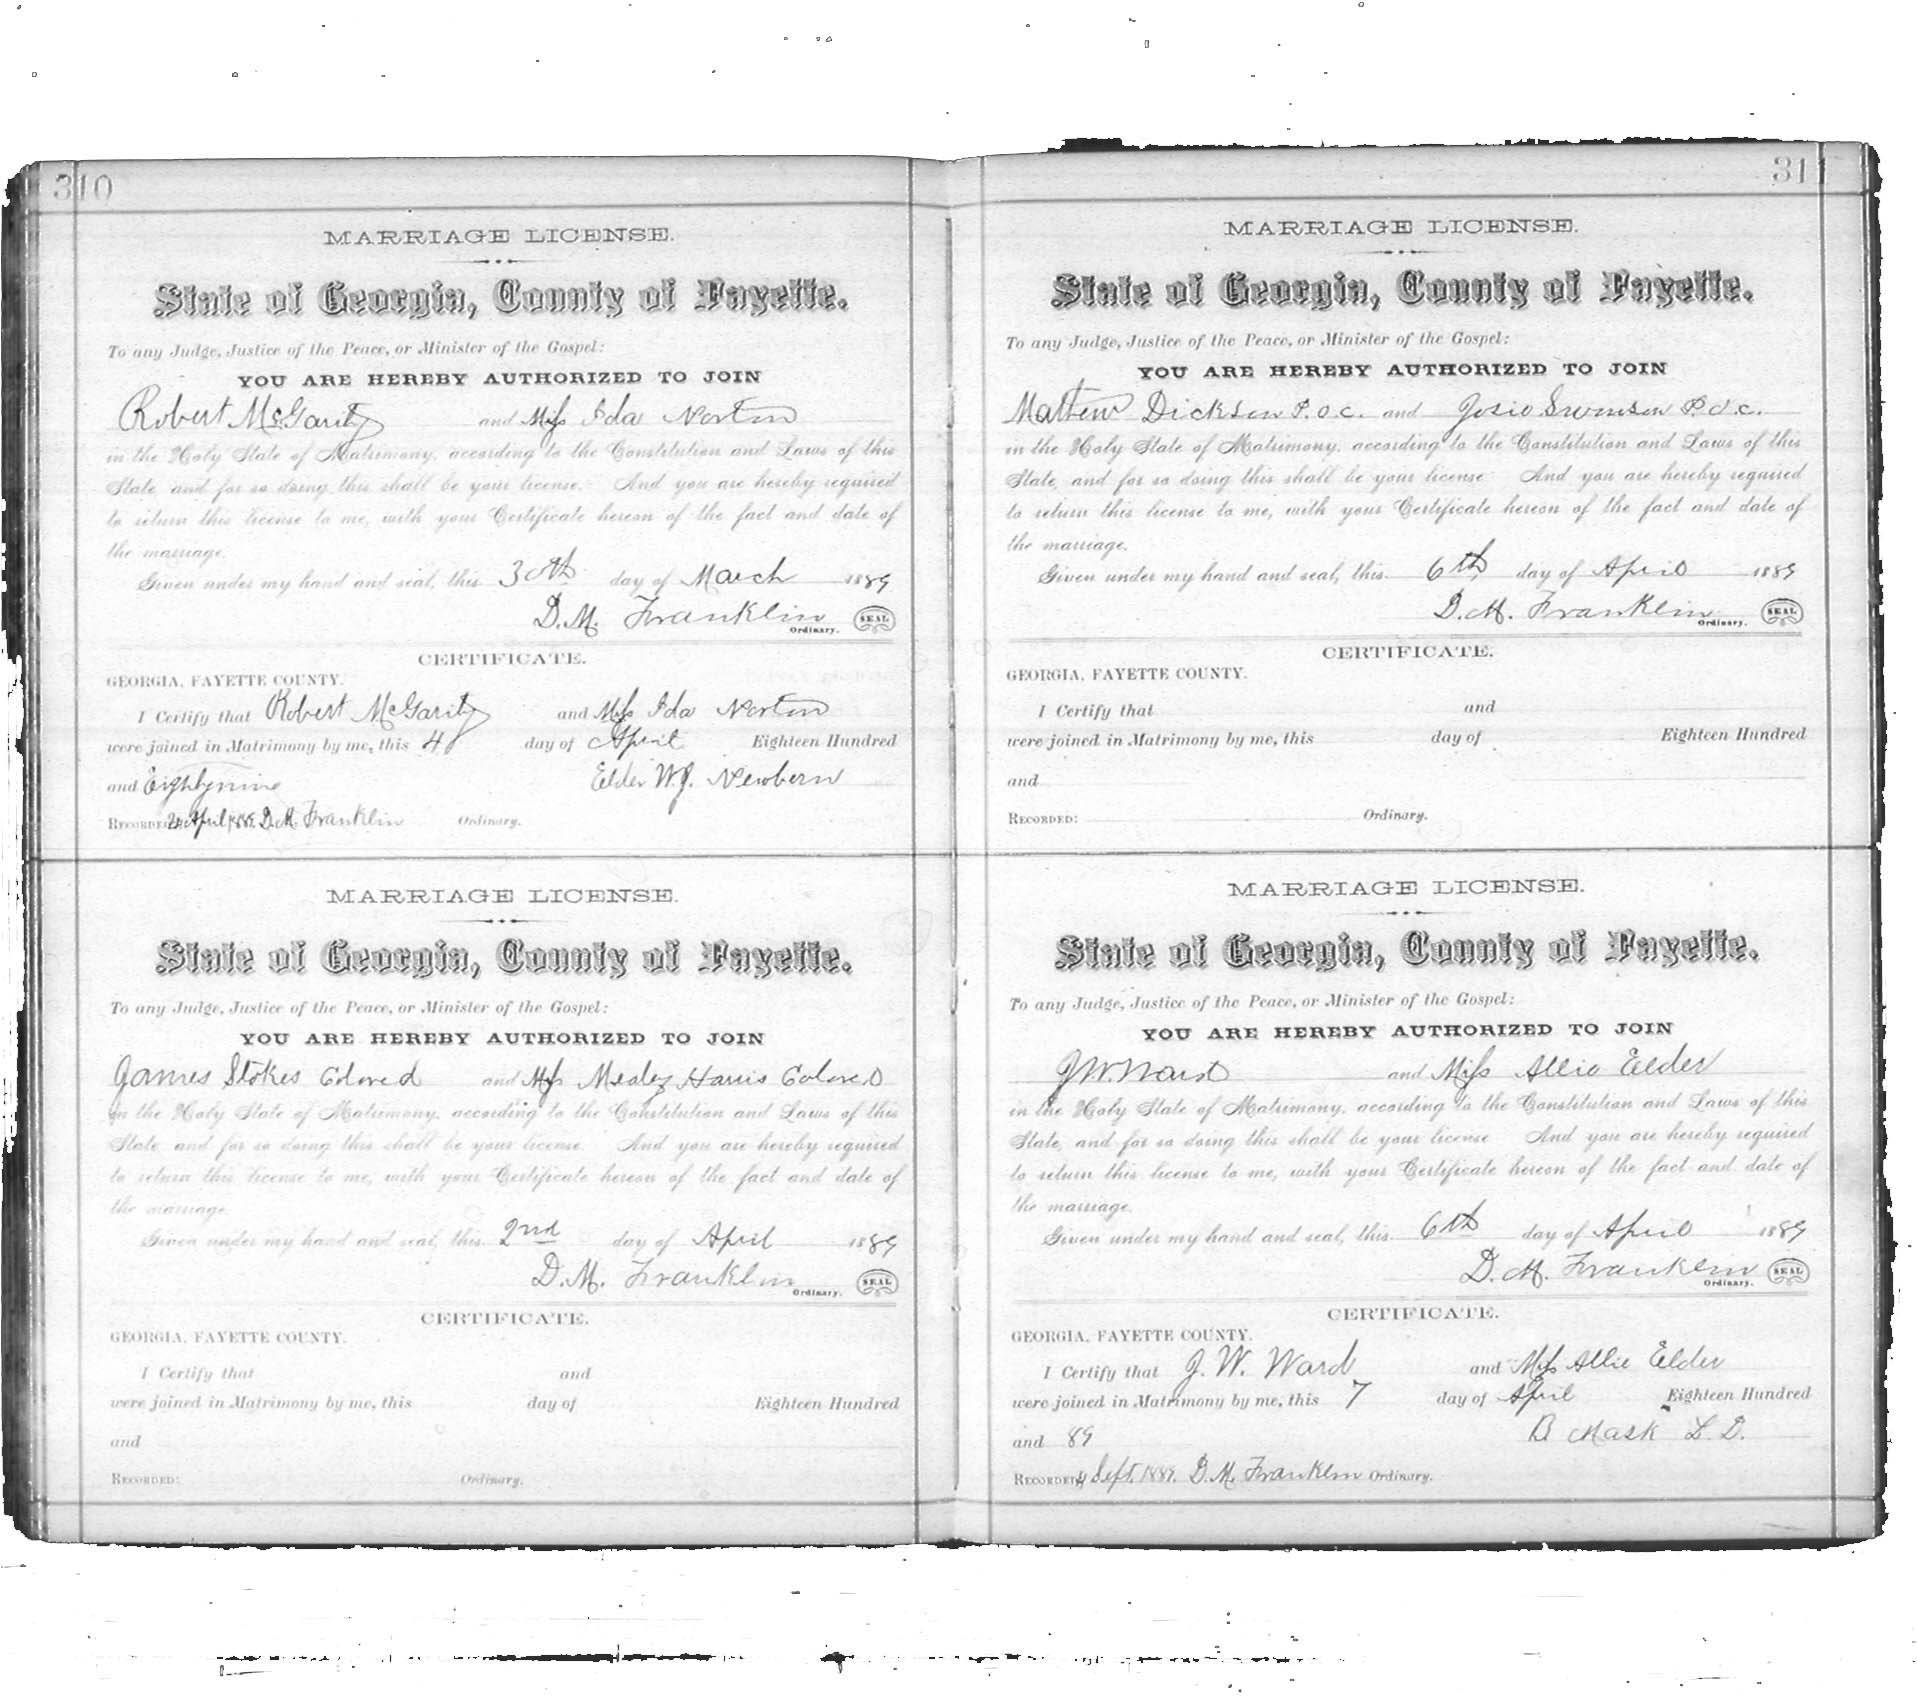 310
MARRIAGE LICENSE.
State of Georgia, County of Fayette.
To any Judge, Justice of the Peace, or Minister of the Gospel:
YOU ARE HEREBY AUTHORIZED TO JOIN
Robert McGarity and Miss Ida Norton
in the Holy State of Matrimony, according to the Constitution and Laws of this
State, and for so doing this shall be your license. And you are hereby required
to return this license to me, with your Certificate hereon of the fact and date of
the marriage.
Given under my hand and seal, this 30th day of March 1889
D. M. Franklin SEAL
Ordinary.
CERTIFICATE.
GEORGIA, FAYETTE COUNTY.
I Certify that Robert McGarity and Miss Ida Norton
were joined in Matrimony by me, this 4 day of April Eighteen Hundred
and Eighty nine Elder W. J. Newbern
RECORDED: April 1889 D. M. Franklin Ordinary.
MARRIAGE LICENSE.
State of Georgia, County of Fayette.
To any Judge, Justice of the Peace, or Minister of the Gospel:
YOU ARE HEREBY AUTHORIZED TO JOIN
James Stokes Colored and Miss Harris Colored
in the Holy State of Matrimony, according to the Constitution and Laws of this
State, and for so doing this shall be your license. And you are hereby required
to return this license to me, with your Certificate hereon of the fact and date of
the marriage.
Given under my hand and seal, this 2nd day of April 1889
D. M. Franklin SEAL
Ordinary.
CERTIFICATE.
GEORGIA, FAYETTE COUNTY.
I Certify that and
were joined in Matrimony by me, this day of Eighteen Hundred
and
RECORDED: Ordinary.
311
MARRIAGE LICENSE.
State of Georgia, County of Fayette.
To any Judge, Justice of the Peace, or Minister of the Gospel:
YOU ARE HEREBY AUTHORIZED TO JOIN
Mathew Dickson P.o.c. and Josie Swanson P.o.c.
in the Holy State of Matrimony, according to the Constitution and Laws of this
State, and for so doing this shall be your license And you are hereby required
to return this license to me, with your Certificate hereon of the fact and date of
the marriage.
Given under my hand and seal, this 6th day of April 1889
D. M. Franklin SEAL
Ordinary.
CERTIFICATE.
GEORGIA, FAYETTE COUNTY.
I Certify that and
were joined in Matrimony by me, this day of Eighteen Hundred
and
RECORDED: Ordinary.
MARRIAGE LICENSE.
State of Georgia, County of Fayette.
To any Judge, Justice of the Peace, or Minister of the Gospel:
YOU ARE HEREBY AUTHORIZED TO JOIN
J W. Ward and Miss Allie Elder
in the Holy State of Matrimony, according to the Constitution and Laws of this
State, and for so doing this shall be your license And you are hereby required
to return this license to me, with your Certificate hereon of the fact and date of
the marriage.
Given under my hand and seal, this 6th day of April 1889
D. M. Franklin SEAL
Ordinary.
CERTIFICATE.
GEORGIA, FAYETTE COUNTY.
I Certify that J. W. Ward and Miss Allie Elder
were joined in Matrimony by me, this 7 day of April Eighteen Hundred
and 89 B Mask L. D.
RECORDED: 4 Sept. 1889. D. M. Franklin Ordinary.